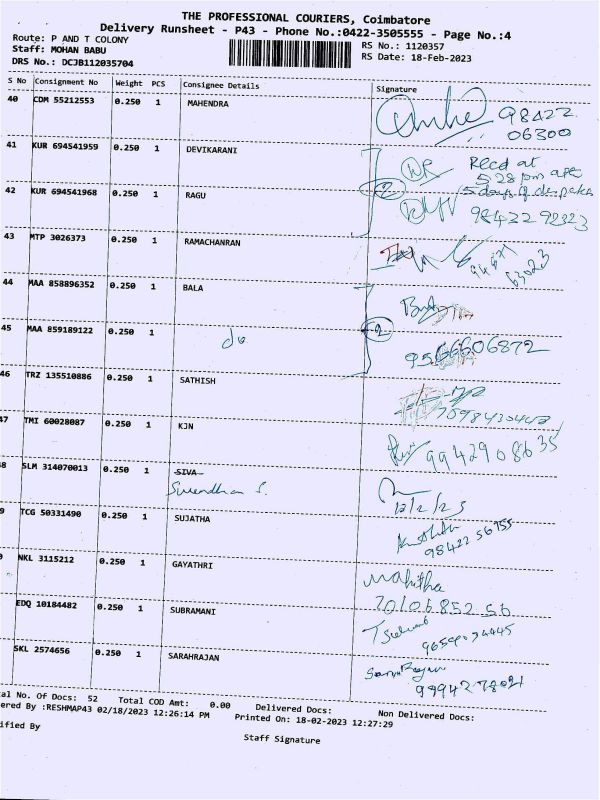 THE PROFESSIONAL COURIERS, Coimbatore
Delivery Runsheet - P43 - Phone No.:0422-3505555 - Page No.:4
Route: P AND T COLONY
RS No.: 1120357
Staff: MOHAN BABU
RS Date: 18-Feb-2023
DRS No.: DCJB112035704
S No Consignment No Weight PCS Consignee Details Signature
40 CDM 55212553 0.250 1 MAHENDRA
98422
06300
41 KUR 694541959 0.250 1 DEVIKARANI
Recd at
5.28 pm
5 days of
42 KUR 694541968 0.250 1 RAGU
2
98422 92323
43 MTP 3026373 0.250 1 RAMACHANRAN
63023
44 MAA 858896352 0.250 1 BALA
45 MAA 859189122 0.250 1 do
2
9566606872
46 TRZ 135510886 0.250 1 SATHISH
47 TMI 60028087 0.250 1 KJN
9942908635
48 SLM 314070013 0.250 1 SIVA
Surendhar S.
TCG 50331490 0.250 1 SUJATHA
98422 56755
NKL 3115212 0.250 1 GAYATHRI
Mahitha
70106 852 56
EDQ 10184482 0.250 1 SUBRAMANI
SKL 2574656 0.250 1 SARAHRAJAN
al No. Of Docs: 52 Total COD Amt: 0.00 Delivered Docs: Non Delivered Docs:
ered By :RESHMAP43 02/18/2023 12:26:14 PM Printed On: 18-02-2023 12:27:29
ified By
Staff Signature